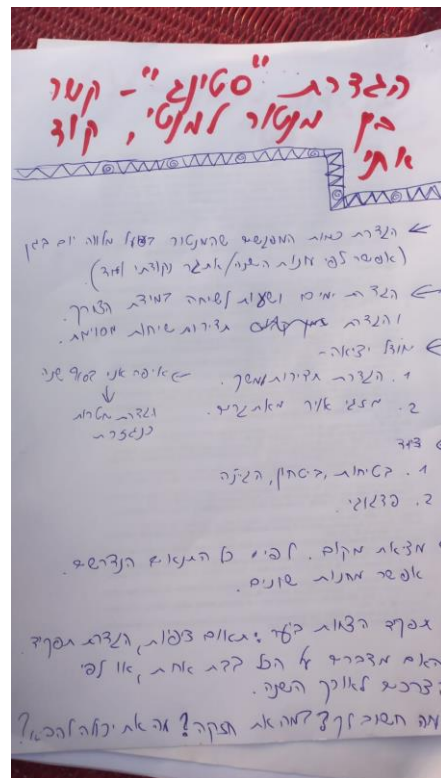 הגדרת "סטינג" - קשר
בין מנטור למנטי, קוד
אתי
הגדרת כמות המפגשים שהמנטור בפועל מלווה יום בגן
(אפשר לפי עונות השנה/אתגר נקודתי ועוד).
הגדרת ימים ושעות לשיחה במידת הצורך.
והגדרת זמן תדירות שיחות מסוימת.
מודל יציאה -
1. הגדרת תדירות ומשך. איפה אני בסוף שנה
2. מזגי אויר מאתגרים. הגדרת מטרות
כנגזרת
ציוד
1. בטיחות, ביטחון, הגיינה
2. פדגוגי.
מציאת מקום. לפי כל התנאים הנדרשים.
אפשר מחנות שונים.
תפקיד הצוות ביער: תאום ציפיות, הגדרת תפקיד.
האם מדברים על הכל בבת אחת, או לפי
צרכים לאורך השנה.
מה חשוב לך? במה את חזקה? מה את יכולה להביא?